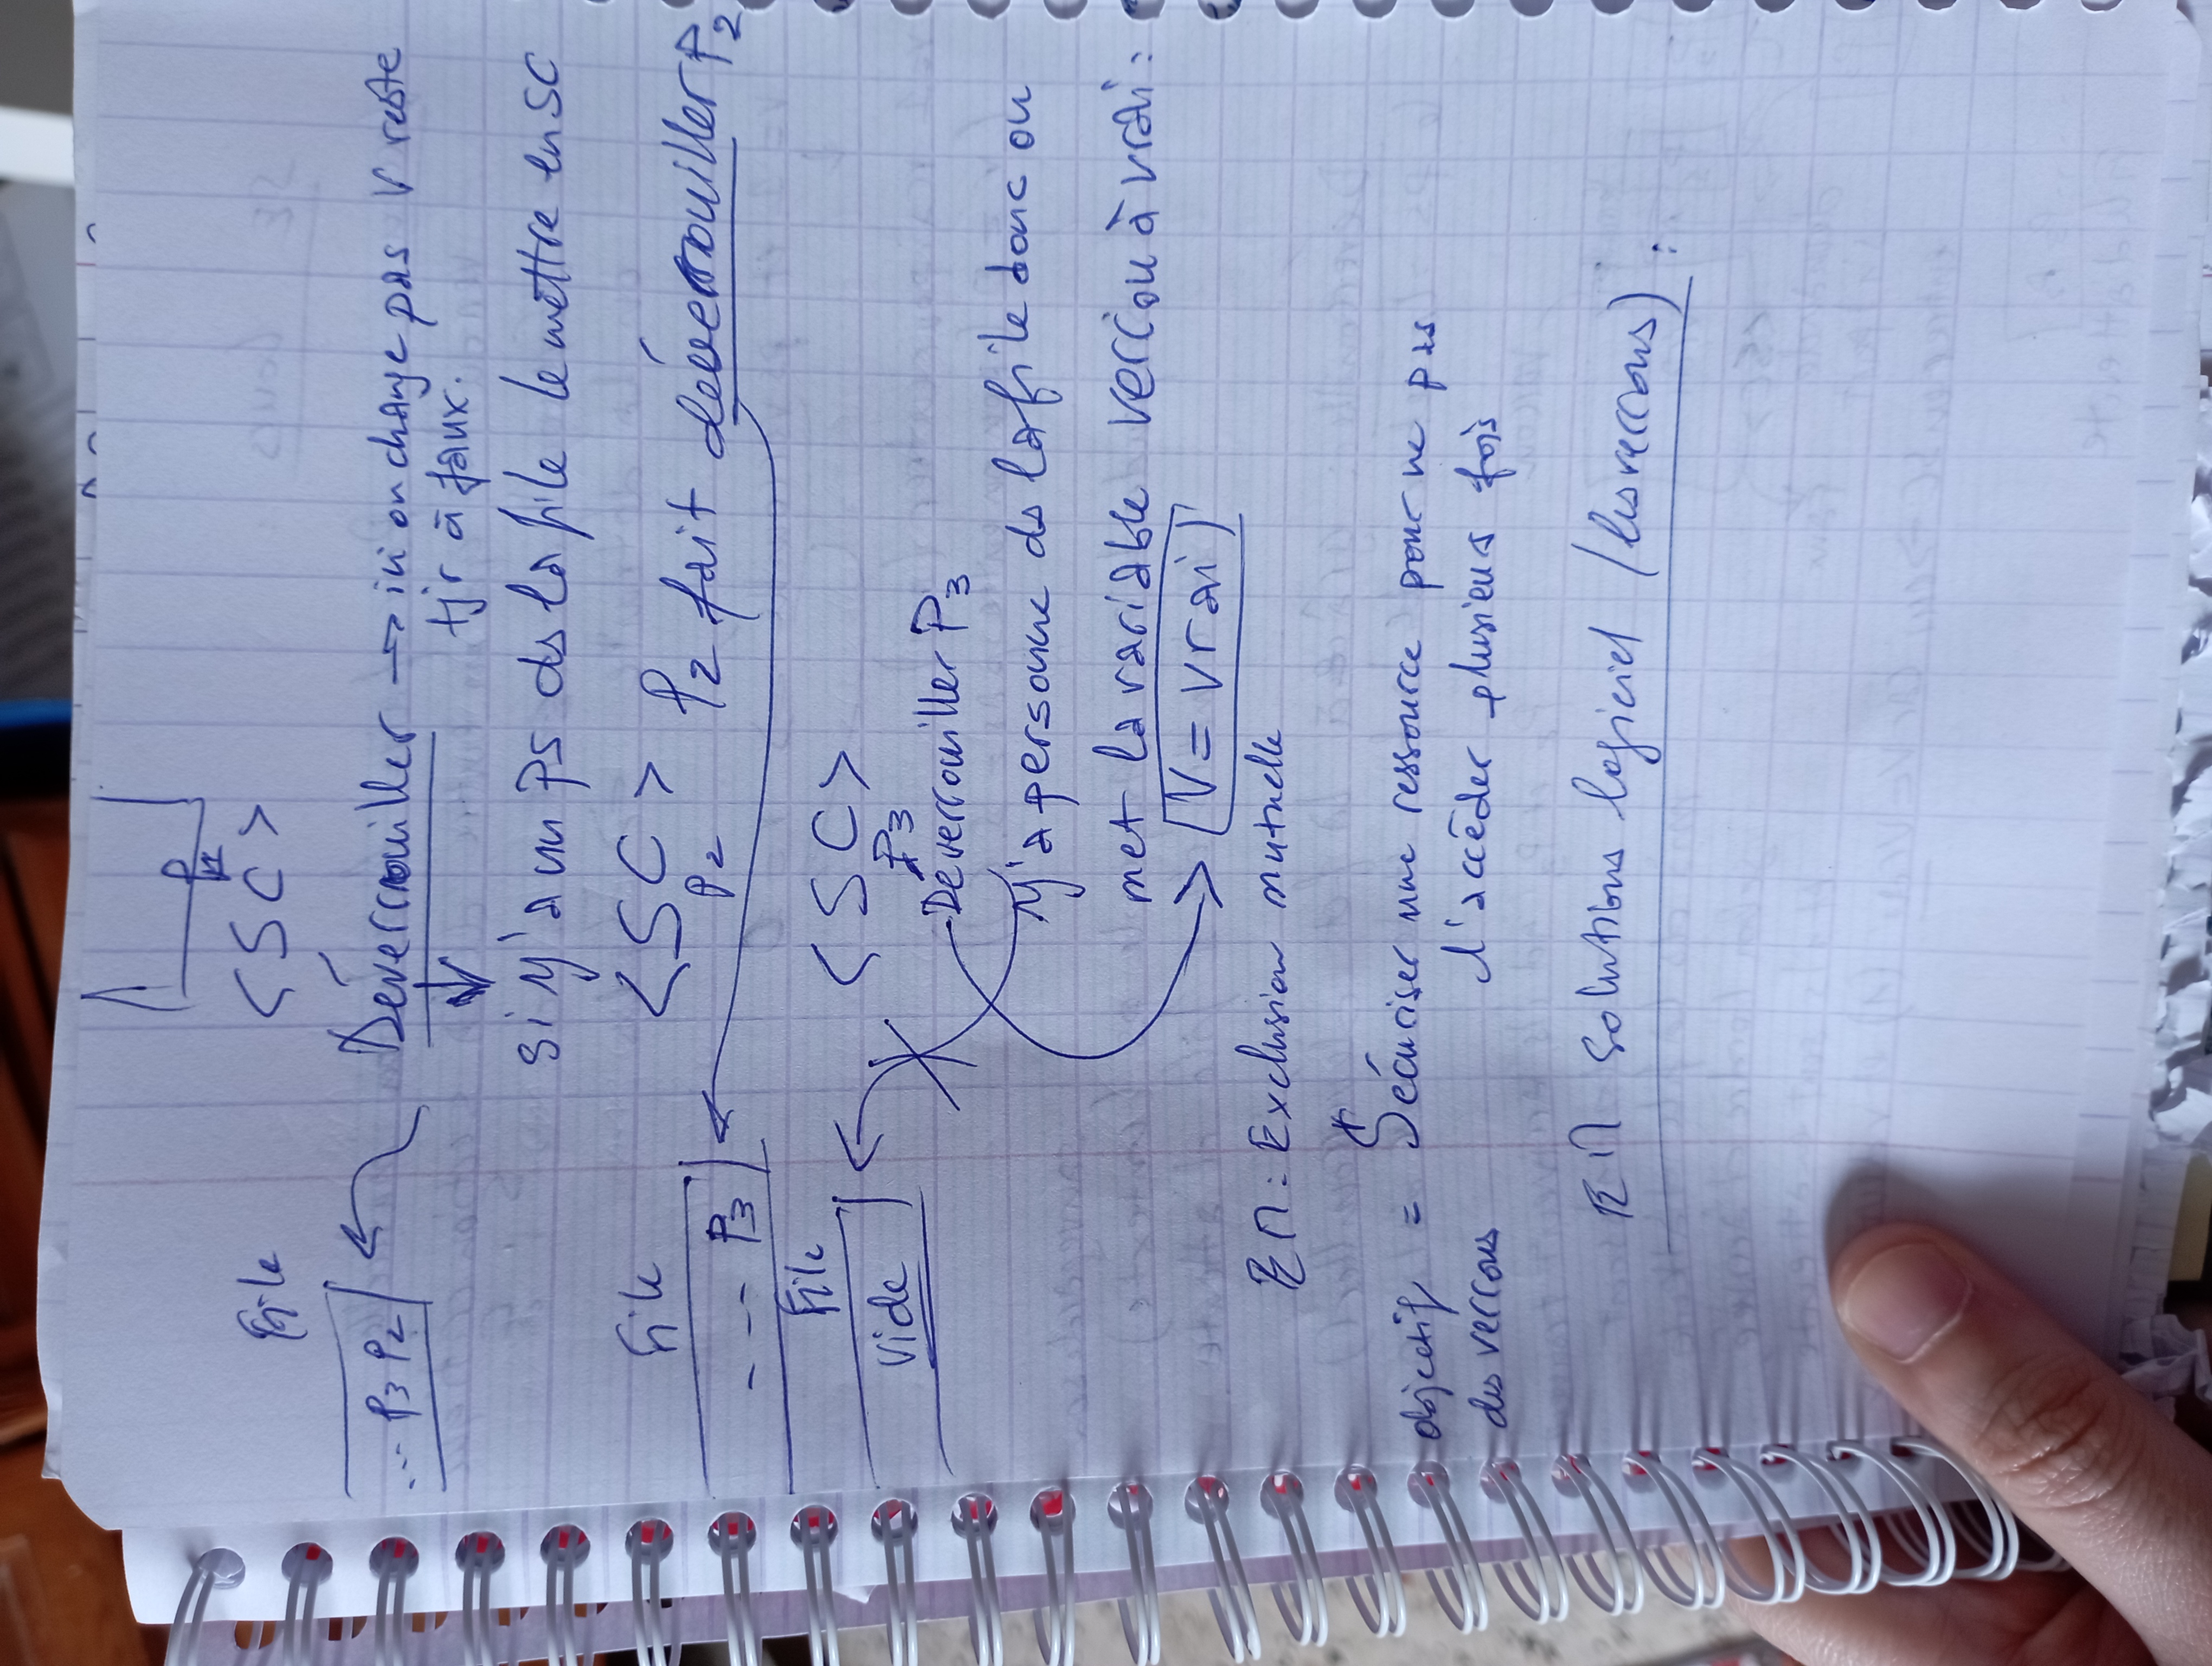 P1
<SC>
File
... P3 P2
Déverrouiller → ici on change pas V reste
tjr à faux.
si y'a un ps ds la file le mettre en SC
File
<SC>
P2
P2 fait déverrouiller P2
--- P3
File
<SC>
P3
Vide
Déverrouiller P3
y'a personne ds la file donc on
met la variable verrou à vrai :
V = vrai
EM : Exclusion mutuelle
objectif = Sécuriser une ressource pour ne pas
des verrous l'accéder plusieurs fois
EM solutions logiciel (les verrous) :